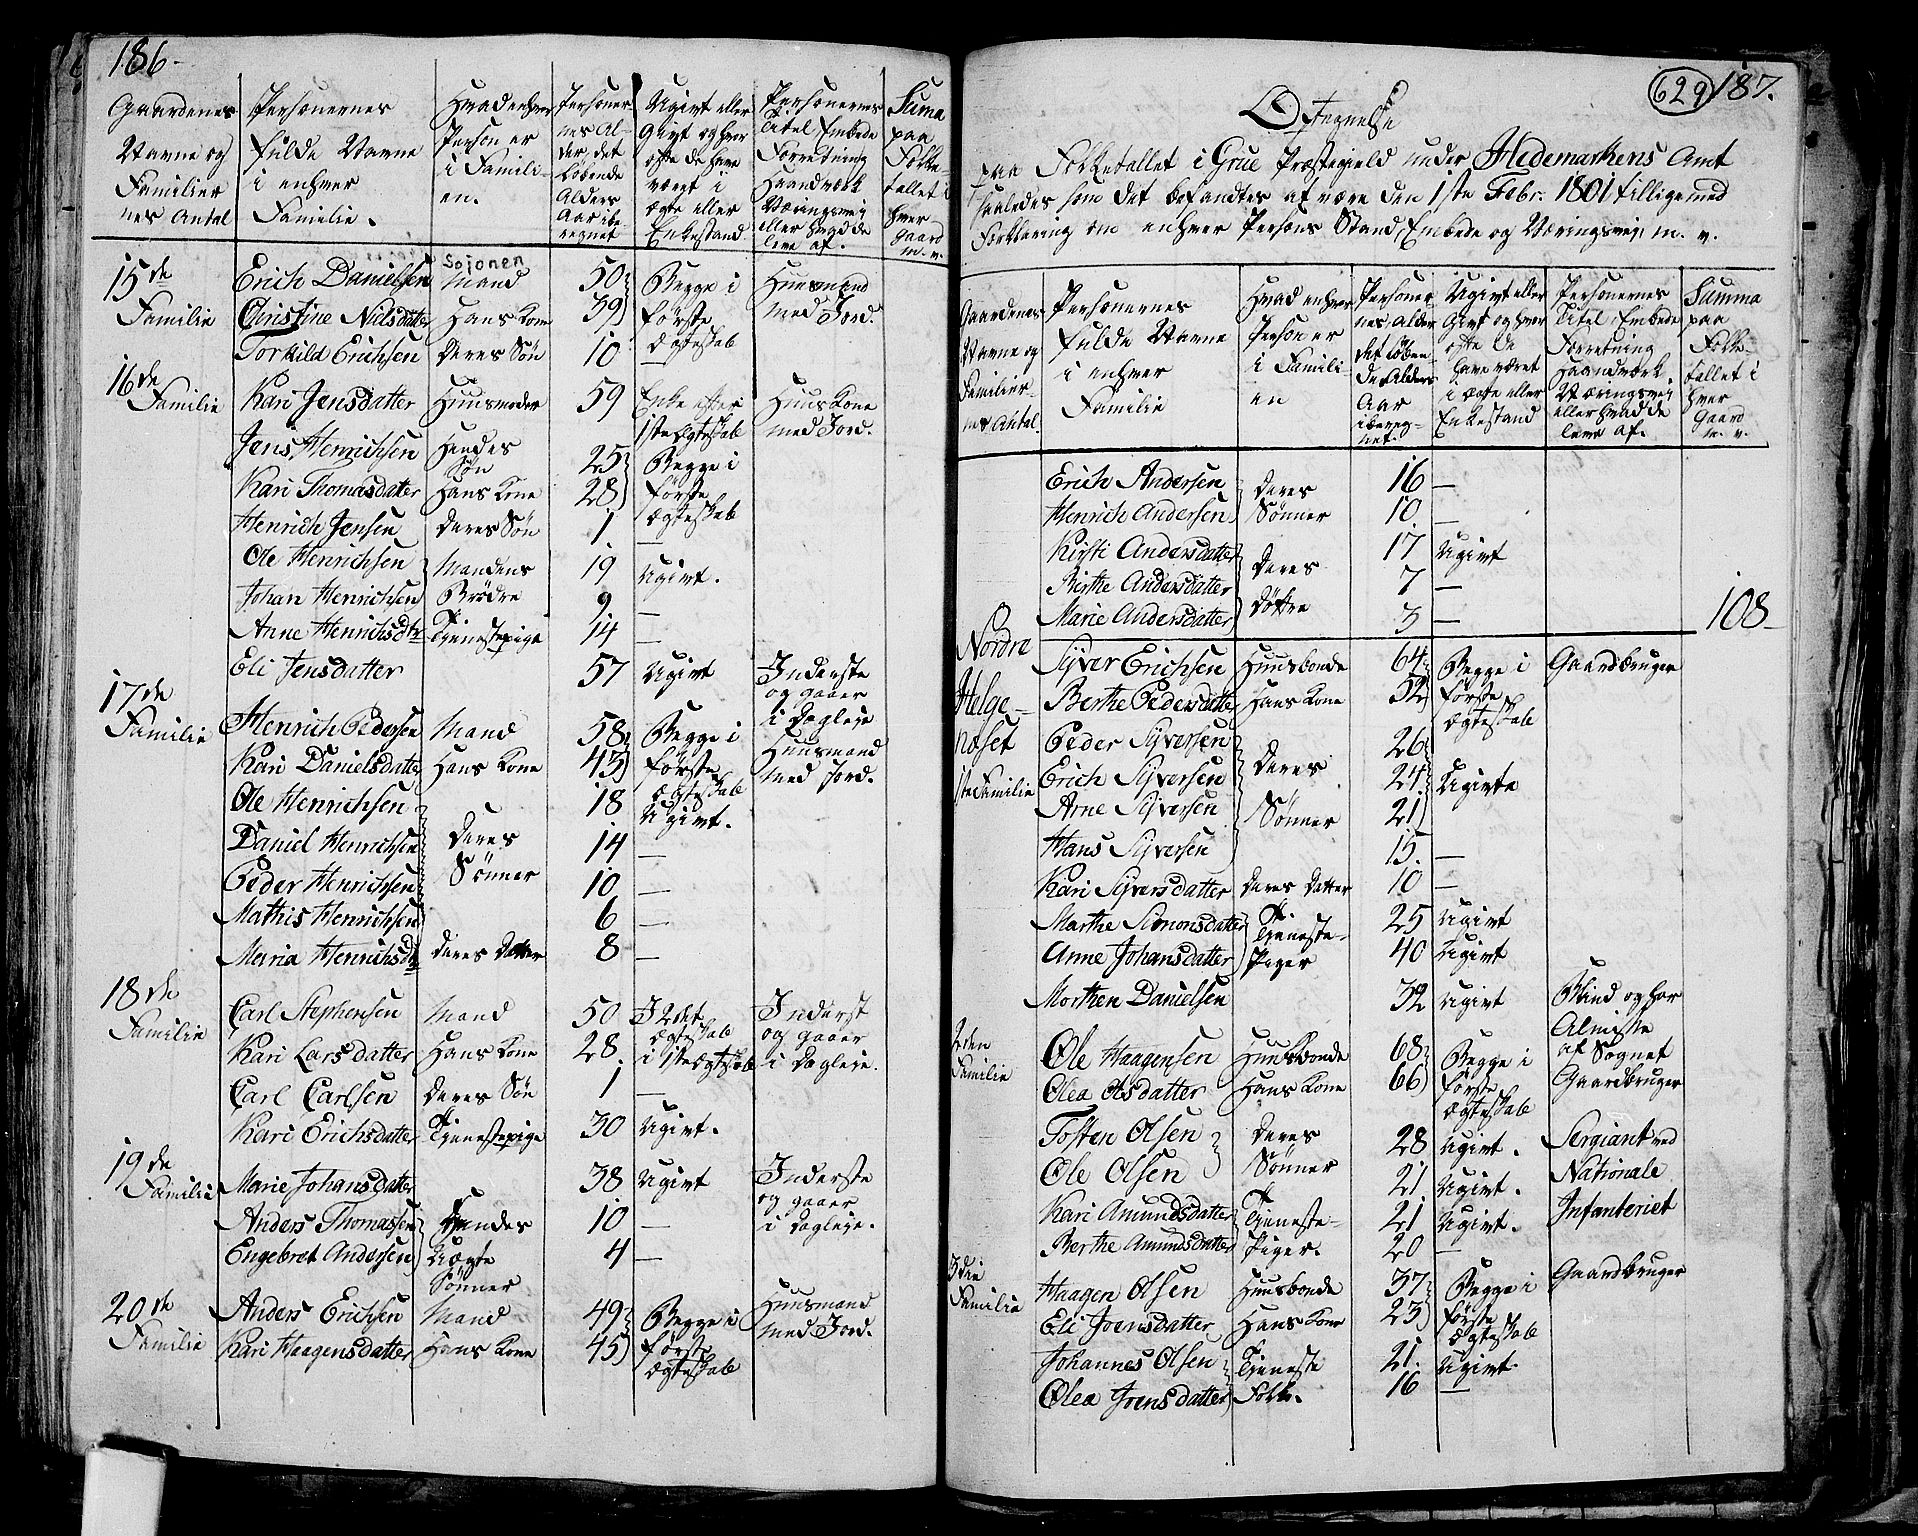 186.
Gaardenes Navne og Familiernes Antal | Personernes fulde Navne i enhver Familie. | Hvad enhver Person er i Familien. | Personernes Alder det løbende Alders Aar iberegnet | Ugivt eller Givt og hvor ofte de have været i Ægte eller Enkestand | Personernes Titel, Embede Forretning Haandværk Næringsvei eller hvad de leve af. | Suma paa Folketallet i hver Gaard m. v.
Sojonen
15de Familie | Erich Danielsen | Mand | 50 | Begge i | Huusmand
Christine Nilsdatter | Hans Kone | 39 | første | med Jord.
Torkild Erichsen | Deres Søn | 10 | Ægteskab
16de Familie | Kari Jensdatter | Huusmoder | 59 | Enke efter 1ste Ægteskab | Huuskone med Jord.
Jens Henrichsen | Hendes Søn | 25 | Begge i
Kari Thomasdatter | Hans Kone | 28 | første Ægteskab
Henrich Jensen | Deres Søn | 1 | —
Ole Henrichsen | Mandens | 19 | Ugivt.
Johan Henrichsen | Brødre | 9 | —
Anne Henrichsdtr | Tjenestepige | 14 | —
Eli Jensdatter | 57 | Ugivt | Inderste og gaaer i Dagleje
17de Familie | Henrich Pedersen | Mand | 58 | Begge i | Huusmand
Kari Danielsdatter | Hans Kone | 43 | første Ægteskab | med Jord.
Ole Henrichsen | Deres | 18 | Ugivt.
Daniel Henrichsen | Sønner | 14 | —
Peder Henrichsen | 10 | —
Mathis Henrichsen | 6 | —
Maria Henrichsdtr | Deres Datter | 8 | —
18de Familie | Carl Stephensen | Mand | 50 | I 2det Ægteskab | Inderst og gaaer
Kari Larsdatter | Hans Kone | 28 | i 1ste Ægteskab | i Dagleje.
Carl Carlsen | Deres Søn | 1 | —
Kari Erichsdatter | Tjenestepige | 30 | Ugivt.
19de Familie | Marie Johansdatter | 38 | Ugivt | Inderste og gaaer i Dagleje.
Anders Thomassen | Hendes | 10 | —
Engebret Andersen | Uægte Sønner | 4 | —
20de Familie | Anders Erichsen | Mand | 49 | Begge i | Huusmand
Kari Haagensdatter | Hans Kone | 45 | første Ægteskab | med Jord.
629 187.
Optegnelse
paa Folketallet i Grue Præstegield under Hedemarkens Amt
saaledes som det befandtes af være den 1ste Febr. 1801 tilligemed
Forklaring om enhver Persons Stand, Embede og Næringsvei, m. v.
Gaardenes Navne og Familiernes Antal. | Personernes fulde Navne i enhver Familie | Hvad enhver Person er i Familien | Personernes Alder det løbende Alders Aar iberegnet. | Ugivt eller Givt og hvor ofte de have været i Ægte eller Enkestand | Personernes Titel, Embede Forretning Haandværk Næringsvei eller hvad de leve af. | Summa paa Folketallet i hver Gaard m. v.
Erich Andersen | Deres | 16 | —
Henrich Andersen | Sønner | 10 | —
Kirsti Andersdatter | Deres | 17 | Ugivt
Birthe Andersdatter | Døttre | 7 | —
Marie Andersdatter | 3 | — | 108
Nordre Helgenæset 1ste Familie | Syver Erichsen | Huusbonde | 64 | Begge i | Gaardbruger
Berthe Pedersdatter | Hans Kone | 52 | første Ægteskab
Peder Syversen | Deres | 26
Erich Syversen | 24 | Ugivte
Arne Syversen | Sønner | 21
Hans Syversen | 15. | —
Kari Syversdatter | Deres Datter | 10 | —
Marthe Simonsdatter | Tjeneste- | 25 | Ugivt
Anne Johansdatter | Piger | 40 | Ugivt
Morthen Danielsen | 32 | Ugivt | Blind og har Almisse af Sognet
2den Familie | Ole Haagensen | Huusbonde | 68 | Begge i
Olea Olsdatter | Hans Kone | 66 | første Ægteskab | Gaardbruger
Tosten Olsen | Deres | 28 | Ugivt. | Sergiant ved
Ole Olsen | Sønner | 21 | Ugivt. | Nationale
Kari Amundsdatter | Tjeneste- | 21 | Ugivt. | Infanteriet
Berthe Amundsdatter | Piger. | 20 | —
3die Familie | Haagen Olsen | Huusbonde | 37 | Begge i | Gaardbruger
Eli Joensdatter | Hans Kone | 23 | første Ægteskab
Johannes Olsen | Tjeneste | 21. | Ugivt.
Olea Joensdatter | Folk. | 16 | —